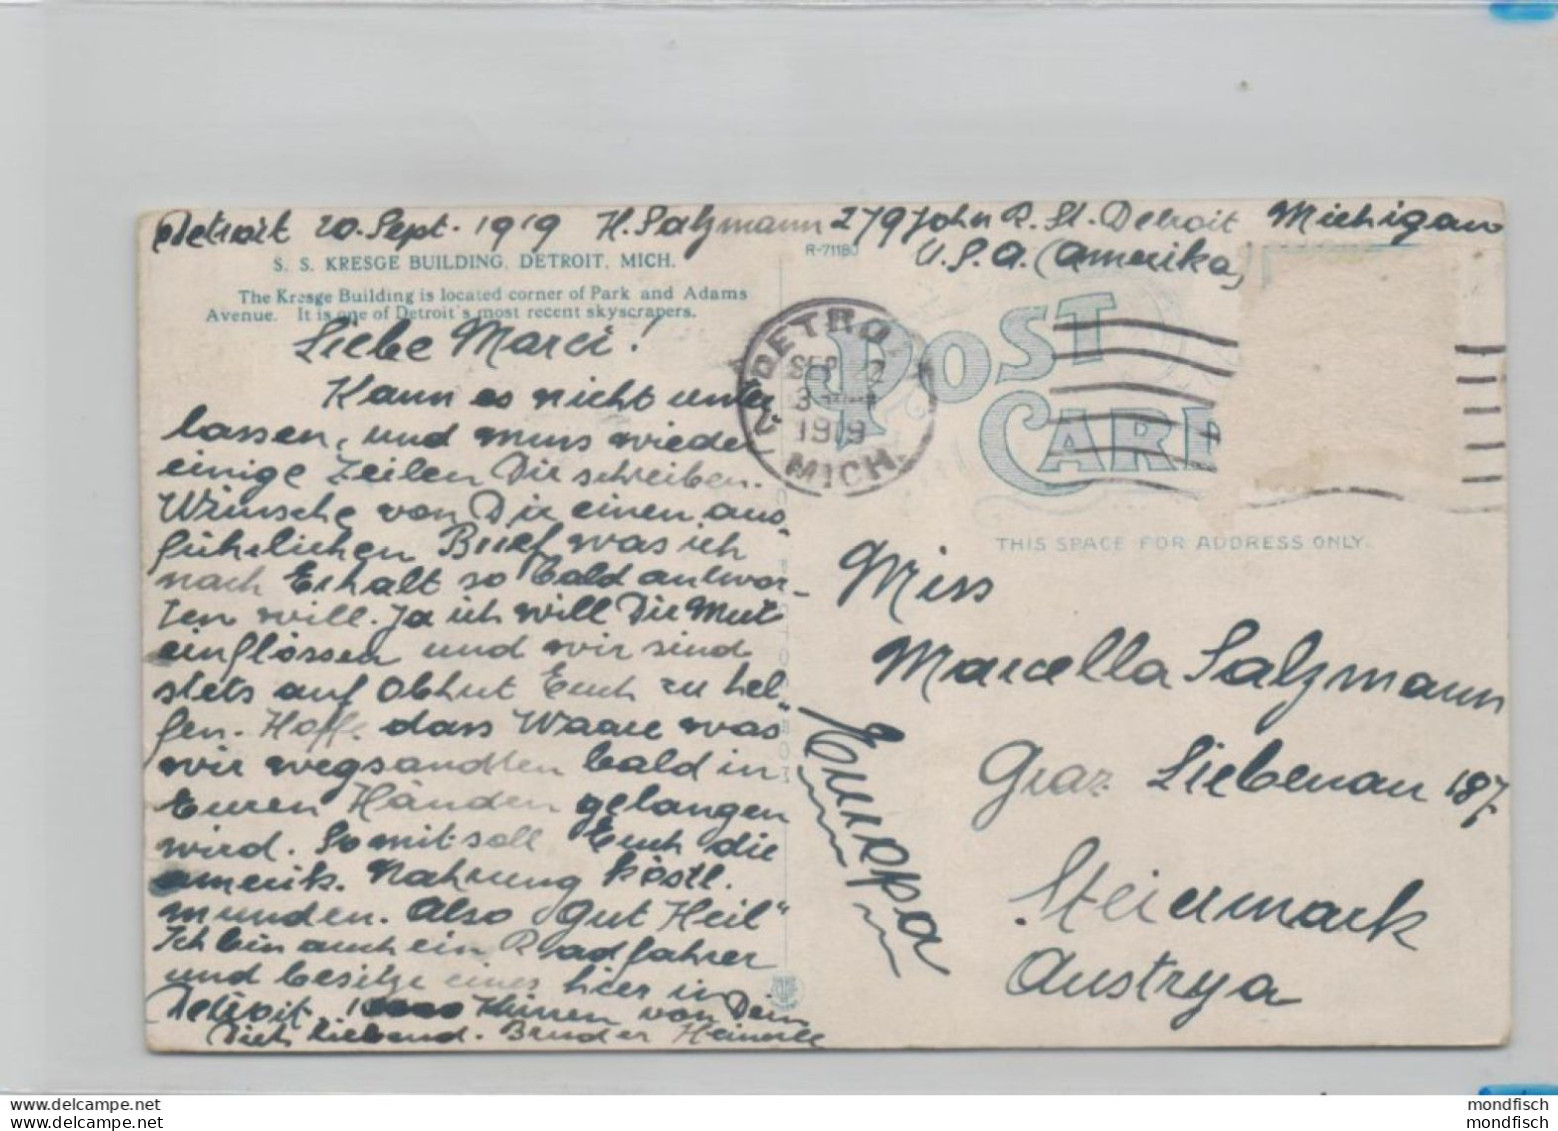 Detroit 20. Sept. 1919 H. Salzmann 279 John R. St. Detroit Michigan
U.S.A. (Amerika)
S. S. KRESGE BUILDING, DETROIT, MICH.
R-71180
The Kresge Building is located corner of Park and Adams
Avenue. It is one of Detroit's most recent skyscrapers.
Liebe Marci!
Kann es nicht unter
lassen, und muss wieder
einige Zeilen Dir schreiben.
Wünsche von Dir einen aus-
führlichen Brief was ich
nach Erhalt so bald antwor-
ten will. Ja ich will Dir Mut
einflössen und wir sind
stets auf Obhut Euch zu hel-
fen. Hoff. dass Waare was
wir wegsandten bald in
Euren Händen gelangen
wird. Somit soll Euch die
amerik. Nahrung köstl.
munden. Also „Gut Heil"
Ich bin auch ein Radfahrer
und besitze eines hier in
Detroit. von Dein
Dich liebend. Bruder
DETROIT
SEP 22
3
1919
MICH.
POST
CARD
THIS SPACE FOR ADDRESS ONLY.
Miss
Marcella Salzmann
Graz Liebenau 187
Steiermark
Austrya
Europa
mondfisch
mondfisch
mondfisch
mondfisch